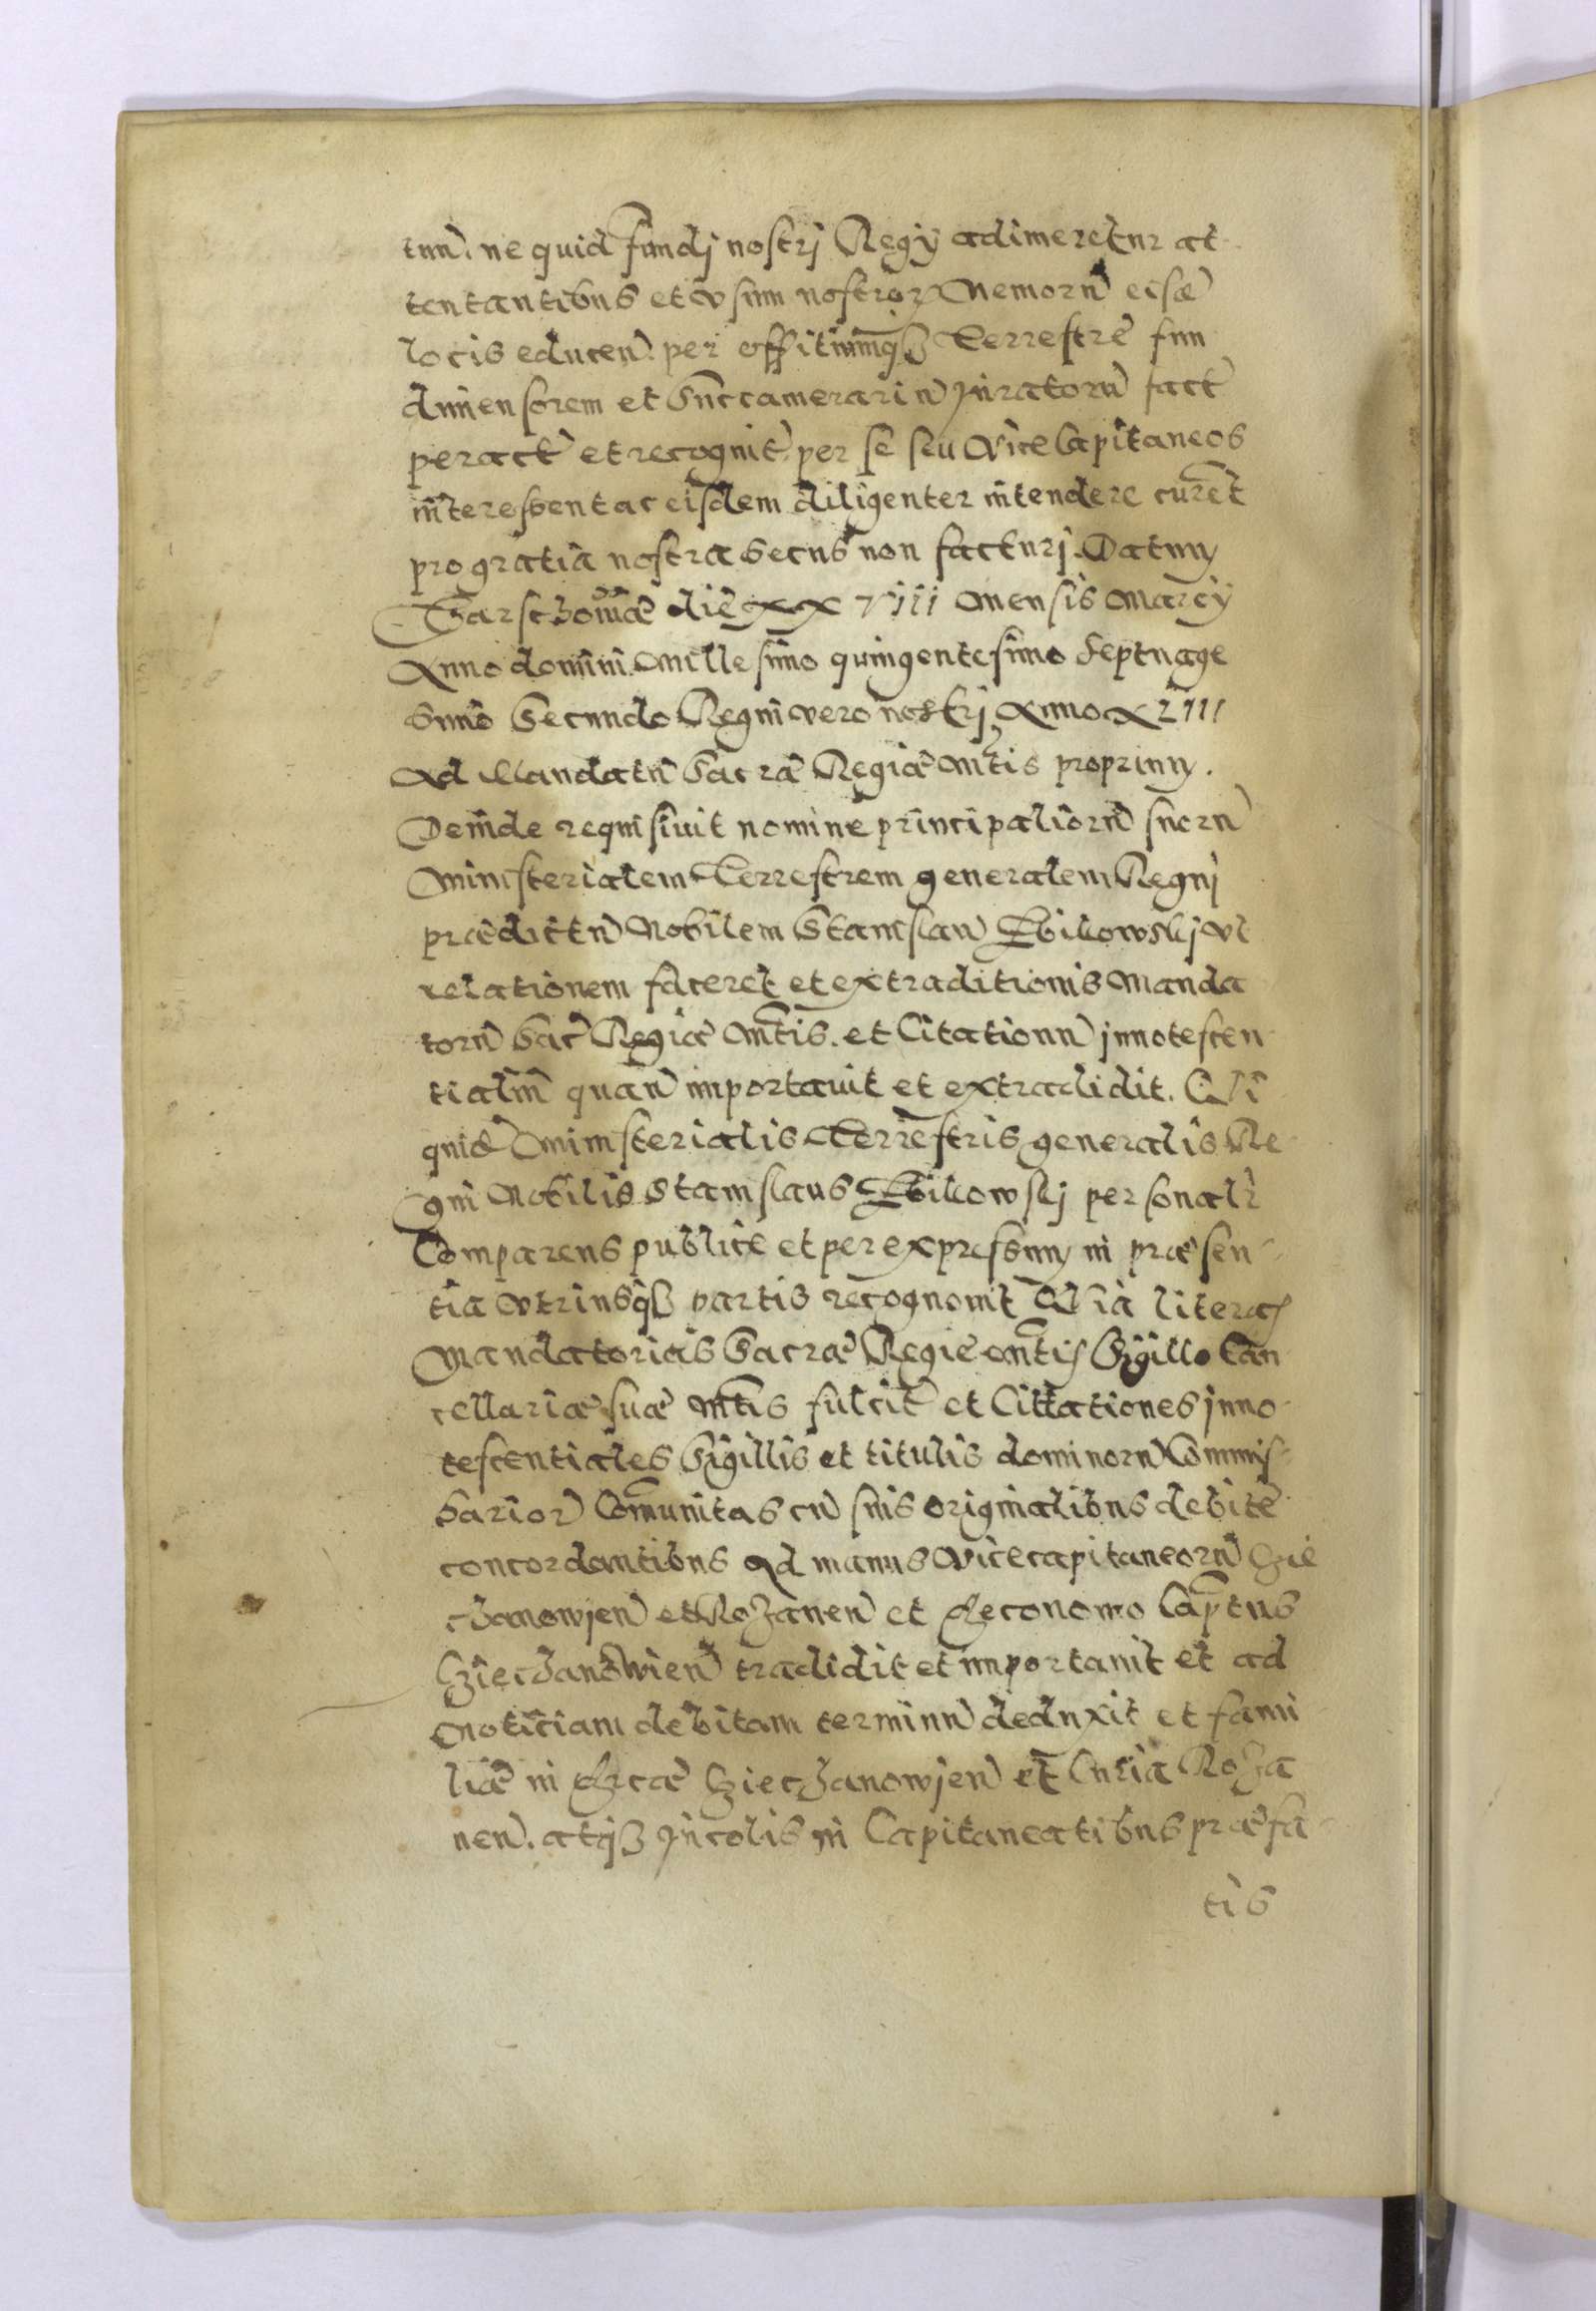 tun. ne quid fundj nostrj Regij adimeretur at
tentantibus et vsum nostror Nemorū eisdē
locis educen. per officiumq₃ Terrestre fun
dimensorem et Succamerariū juratorū fact
peract et recognit. per se seu Vicecapitaneos
interessent ac eisdem diligenter intendere curent
pro gratia nostra secus non facturj. Datum
Varschoviæ die XXVIII Mensis Marcij
Anno domini Millesimo quingentesimo septuage
simo Secundo Regni vero nostrj Anno XLIII
Ad Mandatū Sacræ Regiæ Mtis proprium.
Deinde requisiuit nomine principaliorū suorū
Ministerialem Terrestrem generalem Regnj
prædictū Nobilem Stanislaū Zbikowskj vt
relationem faceret et extraditionis Manda
torū Sac Regiæ Mtis. et Citationū jnnotescen
tialiū quarū importauit et extradidit. Qui
quidē Ministerialis Terrestris generalis Re
gni Nobilis Stanislaus Zbikowskj personalr
Comparens publice et per expressum in præsen
tia vtriusq₃ partis recognouit Quia literas
Mandatorias Sacræ Regie Mtis Sigillo Can
cellariæ suæ Mtis fulcit et Cittationes jnno
tescentiales Sigillis et titulis dominorū Commis
sarior Comunitas cū suis originalibus debite
concordantibus Ad manus Vicecapitaneorū Czie
chanowien et Rozanen et Œconomo Captus
Cziechanowien tradidit et importauit et ad
Noticiam debitam terminū deduxit et fami
liæ in Arcæ Cziechanowien et Curia Roza
nen. atq₃ jncolis in Capitaneatibus præfa
tis